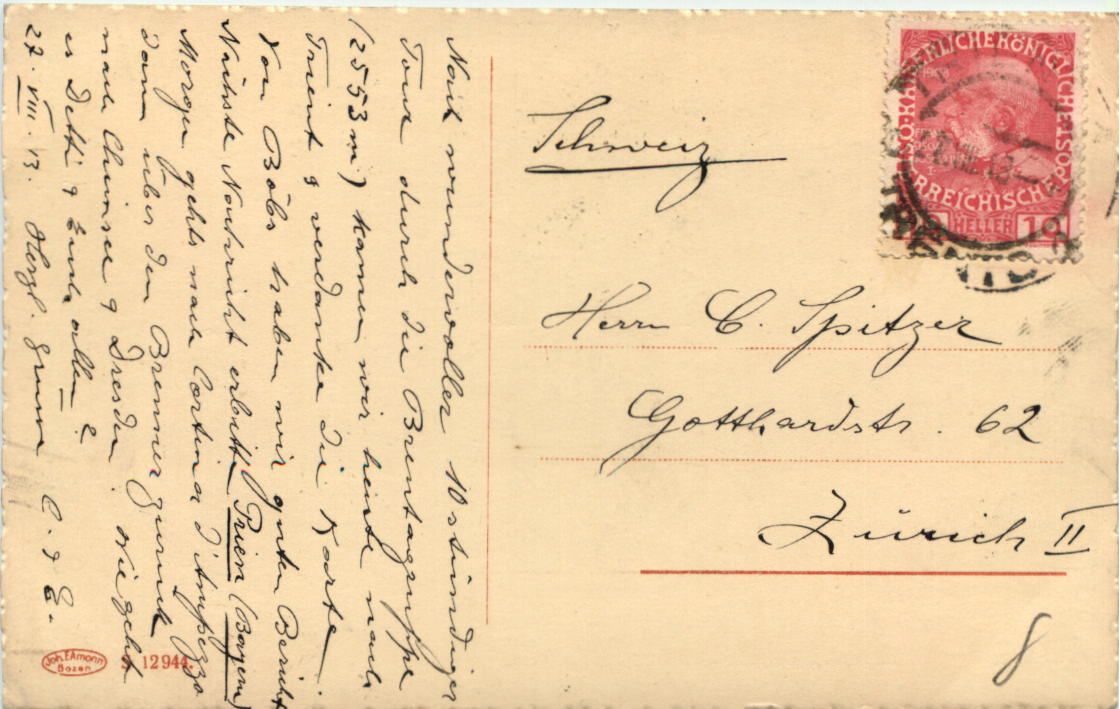 Nach wundervoller 10 stündiger
Tour durch die Brentagruppe
(2553 m) kamen wir heute nach
Trient & verdanke die Karte.
Von Böbs haben wir guten Bericht
Nächste Nachricht erbitte Prien (Bayern)
Morgen gehts nach Cortina d'Ampezzo
dann über den Brenner zurück
nach Chiemsee & Dresden. Wie geht
es Detti & Euch allen?
27.VIII.13. Herzl. Grüsse C. & E.
Joh. F. Amonn
Bozen
S. 12944.
Schweiz
Herrn C. Spitzer
Gotthardstr. 62
Zürich II
8
KAISERLICHE KÖNIGLICHE
ÖSTERREICHISCHE POST
HELLER 10
TRENTO